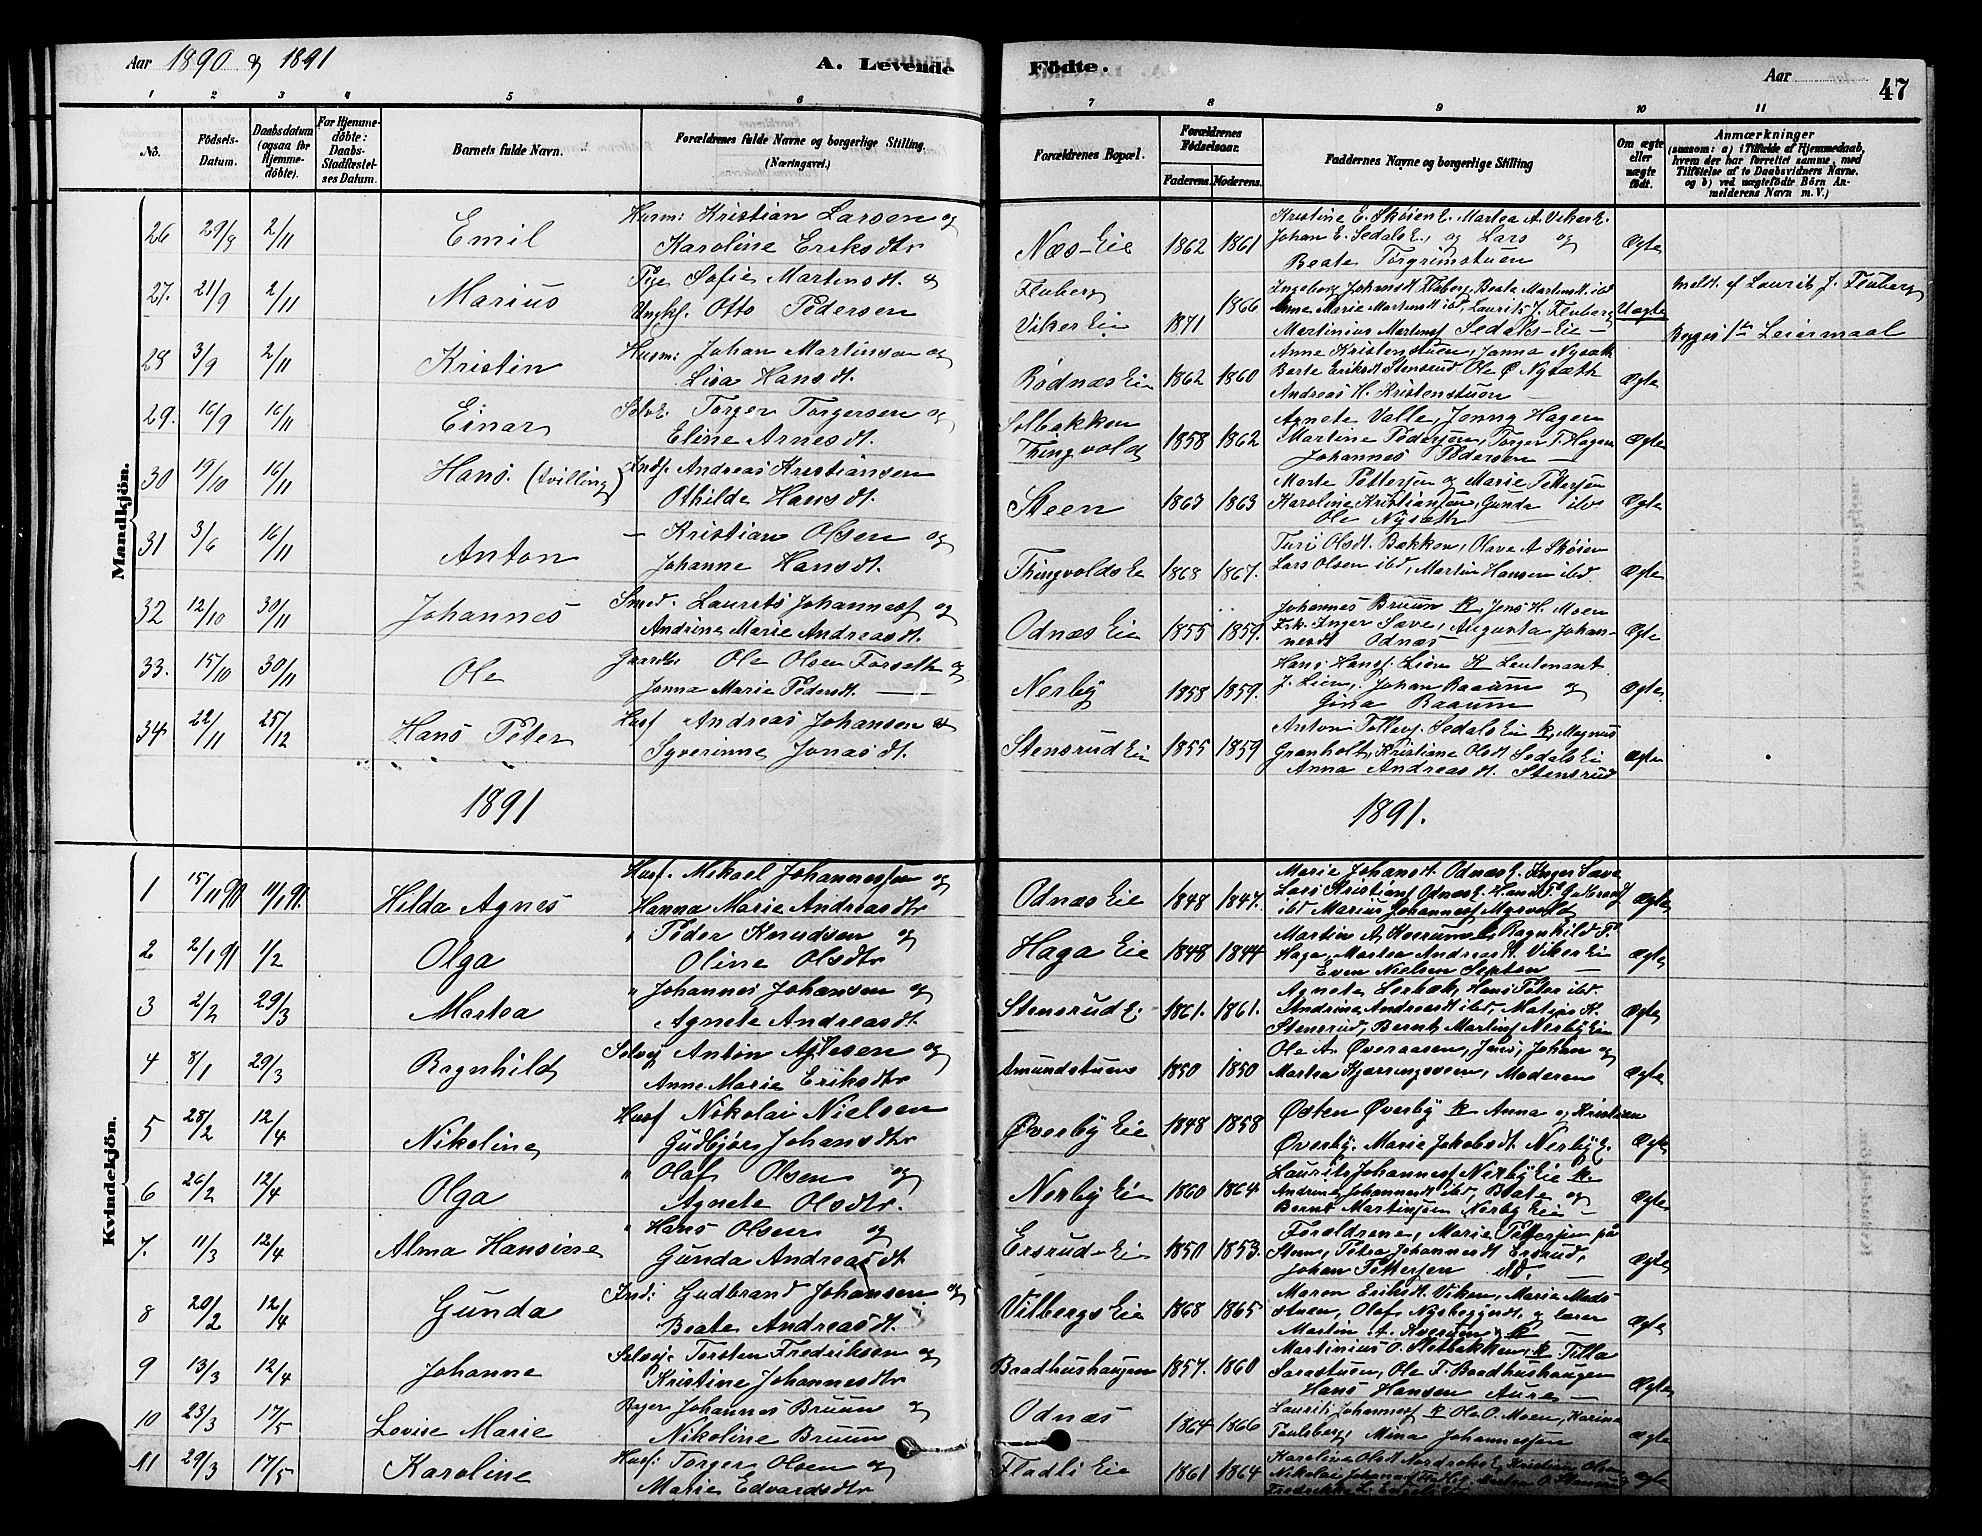 Aar 1890 & 1891
A. Levende Födte.
Aar
47
1 2 3 4 5 6 7 8 9 10 11
No.
Födsels-Datum.
Daabsdatum (ogsaa for Hjemmedöbte).
For Hjemmedöbte: Daabs-Stadfæstelses Datum.
Barnets fulde Navn.
Forældrenes fulde Navne og borgerlige Stilling. (Næringsvei.)
Forældrenes Bopæl.
Forældrenes Födselsaar.
Faderens. Moderens.
Faddernes Navne og borgerlige Stilling
Om ægte eller uægte födt.
Anmærkninger
(saasom: a) i Tilfælde af Hjemmedaab, hvem der har forrettet samme, med Tilföielse af to Daabsvidners Navne. og b) ved uægtefödte Börn Anmelderens Navn m. V.)
Mandkjön.
26 29/9 2/11 Emil Husm: Kristian Larsen og Næs-Eie 1862 1861 Kristine E. Skøien E. Martea A. Viker E. Ægte
Karoline Eriksdtr Johan E. Sedals E., og Lars og
Beate Torgrimstuen
27. 21/9 2/11 Marius Pige Sofie Martensdt. & Fluberg 1866 Ingeborg Johansdt Fluberg, Beate Martensdt. ibd Uægte Meldt. af Laurits J. Fluberg
Ungk. Otto Pedersen Viker Eie 1871 Anne Marie Martensdt ibd, Laurits J. Fluberg
Martinius Martens Sedals-Eie Begges 1ste Leiermaal
28 3/9 2/11 Kristin Husm: Johan Martinsen og Rødnæs Eie 1862 1860 Anne Kristenstuen, Janna Nysæth Ægte
Lisa Hansdt. Berte Eriksdt Stensrud Ole Ø. Nysæth
Andreas H. Kristenstuen
29. 16/9 16/11 Einar Selve. Torger Torgersen og Solbakken 1858 1862 Agnete Valle, Jenny Hagen Ægte
Eline Arnesdt. Thingvold Martine Pedersen, Torger T. Hagen
Johannes Pedersen
30 19/10 16/11 Hans. (tvilling) Inds. Andreas Kristiansen Steen 1863 1863 Marte Pettersen og Marie Pettersen Ægte
Othilde Hansdt. Karoline Kristiansen, Gunda ibd
Ole Nysæth
31 3/6 16/11 Anton — Kristian Olsen og Thingvolds E 1868 1867. Turi Olsdt. Bækken, Olave A Skøien Ægte
Johanne Hansdt. Lars Olsen ibd, Martin Hansen ibd.
32 12/10 30/11 Johannes Smed. Laurits Johannesf og Odnæs Eie 1855 1859. Johannes Bruun K, Jens H. Moen Ægte
Andrine Marie Andreasdt. Frk. Inger Sæve, Augusta Johan-
nesdt Odnæs
33. 15/10 30/11 Ole Gaardbr Ole Olsen Forseth og Nerby 1858 1859. Hans Hansf. Lien K Leutenant Ægte
Janna Marie Pedersdt. J. Lien, Johan Baaum og
Gina Baaum
34 22/11 25/12 Hans Peter Husf Andreas Johansen & Stensrud Eie 1855 1859 Anton Tollevf. Sedals Ei K, Magnus Ægte
Syverinne Jonasdt. Granholt, Kristiane Olsdt Sedals Ei
Anna Andreasdt. Stensrud
1891 1891.
Kvindekjön.
1 15/11 90 11/1 91. Hilda Agnes Husf. Mikael Johannessen og Odnæs Eie 1848 1847. Marie Johansdt. Odnæs E. Inger Sæve Ægte
Hanna Marie Andreasdtr Lars Kristiansf Odnæs E.
ibd Marius Johannesf Myrvold
2 2/1 91 1/2 Olga " Peder Knudsen og Haga Eie 1848 1844 Martin A. Kværum K, Ragnhild P. Ægte
Oline Olsdtr Haga, Martea Andreasdt. Viker Eie
Even Nielsen
3 2/2 29/3 Martea " Johannes Johansen og Stensrud E. 1861. 1861. Agnete Lerbæk, Hans Peter ibd. Ægte
Agnete Andreasdt. Andrine Andreasdt ibd, Matias K.
Stensrud, Bernt Martinsf Nerby Eie
4 8/1 29/3 Ragnhild Selvej Anton Arnesen og Amundstuen 1850 1850 Ole A. Øveraasen, Jens, Johan og Ægte
Anne Marie Eriksdtr Martea Kjærringsveen, Moderen
5 28/2 12/4 Nikoline Husf Nikolai Nielsen Øverby Eie 1848 1858 Østen Øverby K Anna og Kristian Ægte
Gudbjør Johansdtr Øverby. Marie Jakobsdt. Nerby E.
6 26/2 12/4 Olga " Olaf Olsen og Nerby Eie 1860 1864 Laurits Johannesf Nerby Eie K. Ægte
Agnete Olsdtr. Andrine Johannesdt ibd, Beate og
Bernt Martinsen Nerby Eie
7. 11/3 12/4 Alma Hansine " Hans Olsen og Ersrud-Ei 1850 1853. Forældrene, Marie Pettersen på Ægte
Gunda Andreasdt Steen, Petra Johannesdt Ersrud,
Johan Pettersen ibd.
8 20/2 12/4 Gunda Ind: Gudbrand Johansen og Vilbergs Eie 1868 1865 Maren Eriksdt. Viken, Marie Mads- Ægte
Beate Andreasdt. stuen, Olaf Nybergsdt. og lærer
Martin A. Kværum K
9 13/3 12/4 Johanne Selvej. Torsten Fredriksen og Baadhushaugen 1857. 1860 Martinius O. Sletbakken, K Petta Ægte
Kristine Johannesdtr Sarastuen, Ole F. Baadhushaugen
Hans Hansen Aure
10 23/3 17/5 Lovise Marie Bager Johannes Bruun og Odnæs 1864 1866 Laurits Johannesf K Ole O. Moen, Karina Ægte
Nikoline Bruun Paulsberg, Mina Johannessen
11 29/3 17/5 Karoline Husf: Torger Olsen og Fladli Eie 1861 1864 Karoline Olsdt Nordrehe E, Kristian Olsen Ægte
Marie Edvardsdtr Nikolai Johans
Fredrikke L.